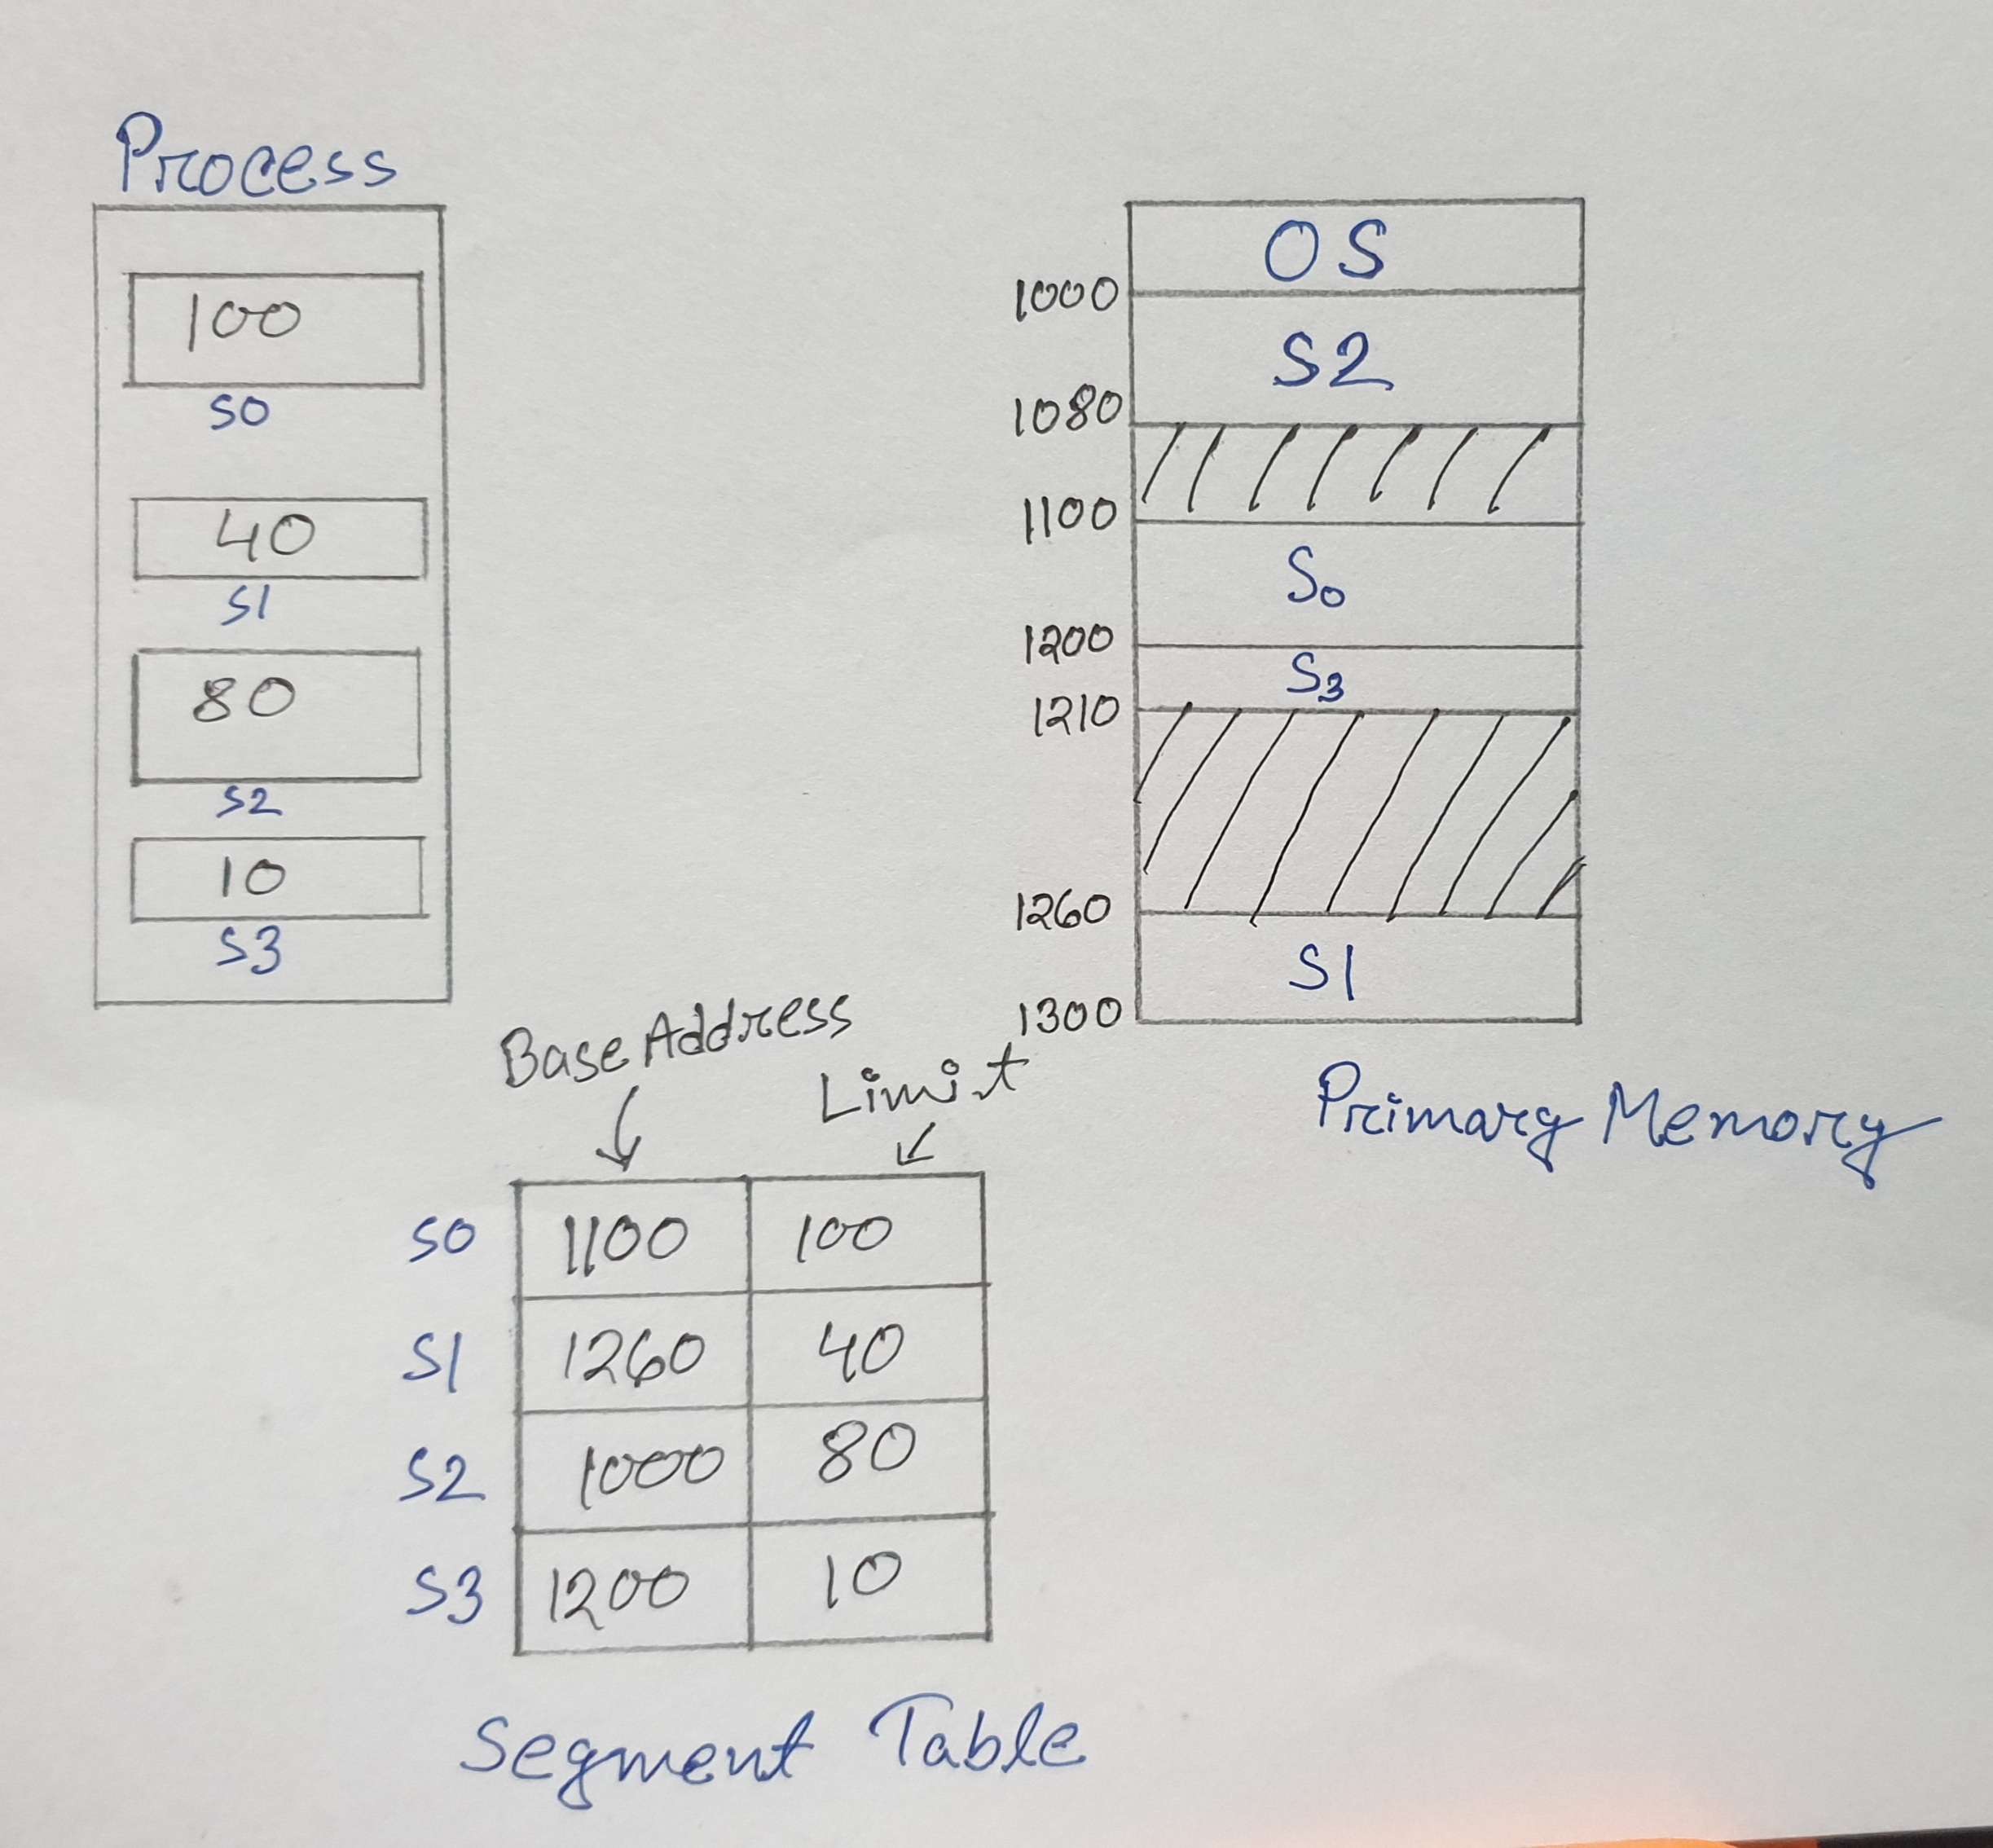 Process
100
S0
40
S1
80
S2
10
S3
OS
1000
S2
1080
1100
S0
1200
S3
1210
1260
S1
1300
Primary Memory
Base Address
Limit
S0 1100 100
S1 1260 40
S2 1000 80
S3 1200 10
Segment Table